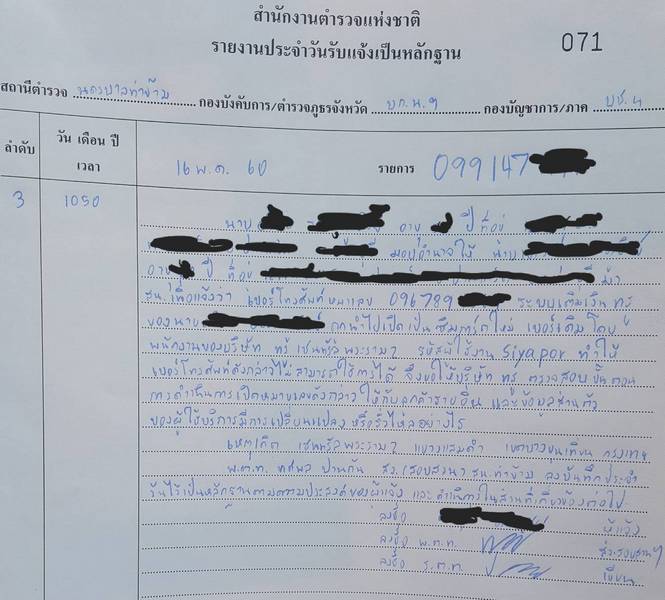 สำนักงานตำรวจแห่งชาติ
รายงานประจำวันรับแจ้งเป็นหลักฐาน
071
สถานีตำรวจ นครบาลท่าข้าม กองบังคับการ/ตำรวจภูธรจังหวัด บก.น.9 กองบัญชาการ/ภาค บช.น
ลำดับ
วัน เดือน ปี
เวลา
16 พ.ค. 60 รายการ 099147
3 1050
นาย อายุ ปี ที่อยู่
มอบอำนาจให้ นาย
อายุ ปี ที่อยู่ มา
สน.เพื่อแจ้งว่า เบอร์โทรศัพท์หมายเลข 096789 ระบบเติมเงิน ทรู
ของนาย ถูกนำไปเปิดเป็นซิมการ์ดใหม่ เบอร์เดิม โดย
พนักงานของบริษัท ทรู เซนทรัลพระราม 2 รหัสผู้ใช้งาน Siyapor ทำให้
เบอร์โทรศัพท์ดังกล่าวไม่สามารถใช้การได้ จึงขอให้บริษัท ทรู ตรวจสอบขั้นตอน
การดำเนินการเปิดหมายเลขดังกล่าว ให้กับลูกค้ารายอื่น และข้อมูลส่วนตัว
ของผู้ใช้บริการมีการเปลี่ยนแปลง หรือรั่วไหลอย่างไร
เหตุเกิด เซนทรัลพระราม 2 แขวงแสมดำ เขตบางขุนเทียน กรุงเทพ
พ.ต.ท. ปานกัน สว.(สอบสวน) สน.ท่าข้าม ลงบันทึกประจำ
วันไว้เป็นหลักฐานตามความประสงค์ของผู้แจ้ง และดำเนินการในส่วนที่เกี่ยวข้องต่อไป
ลงชื่อ ผู้แจ้ง
ลงชื่อ พ.ต.ท.
ลงชื่อ ร.ต.ท. เขียน